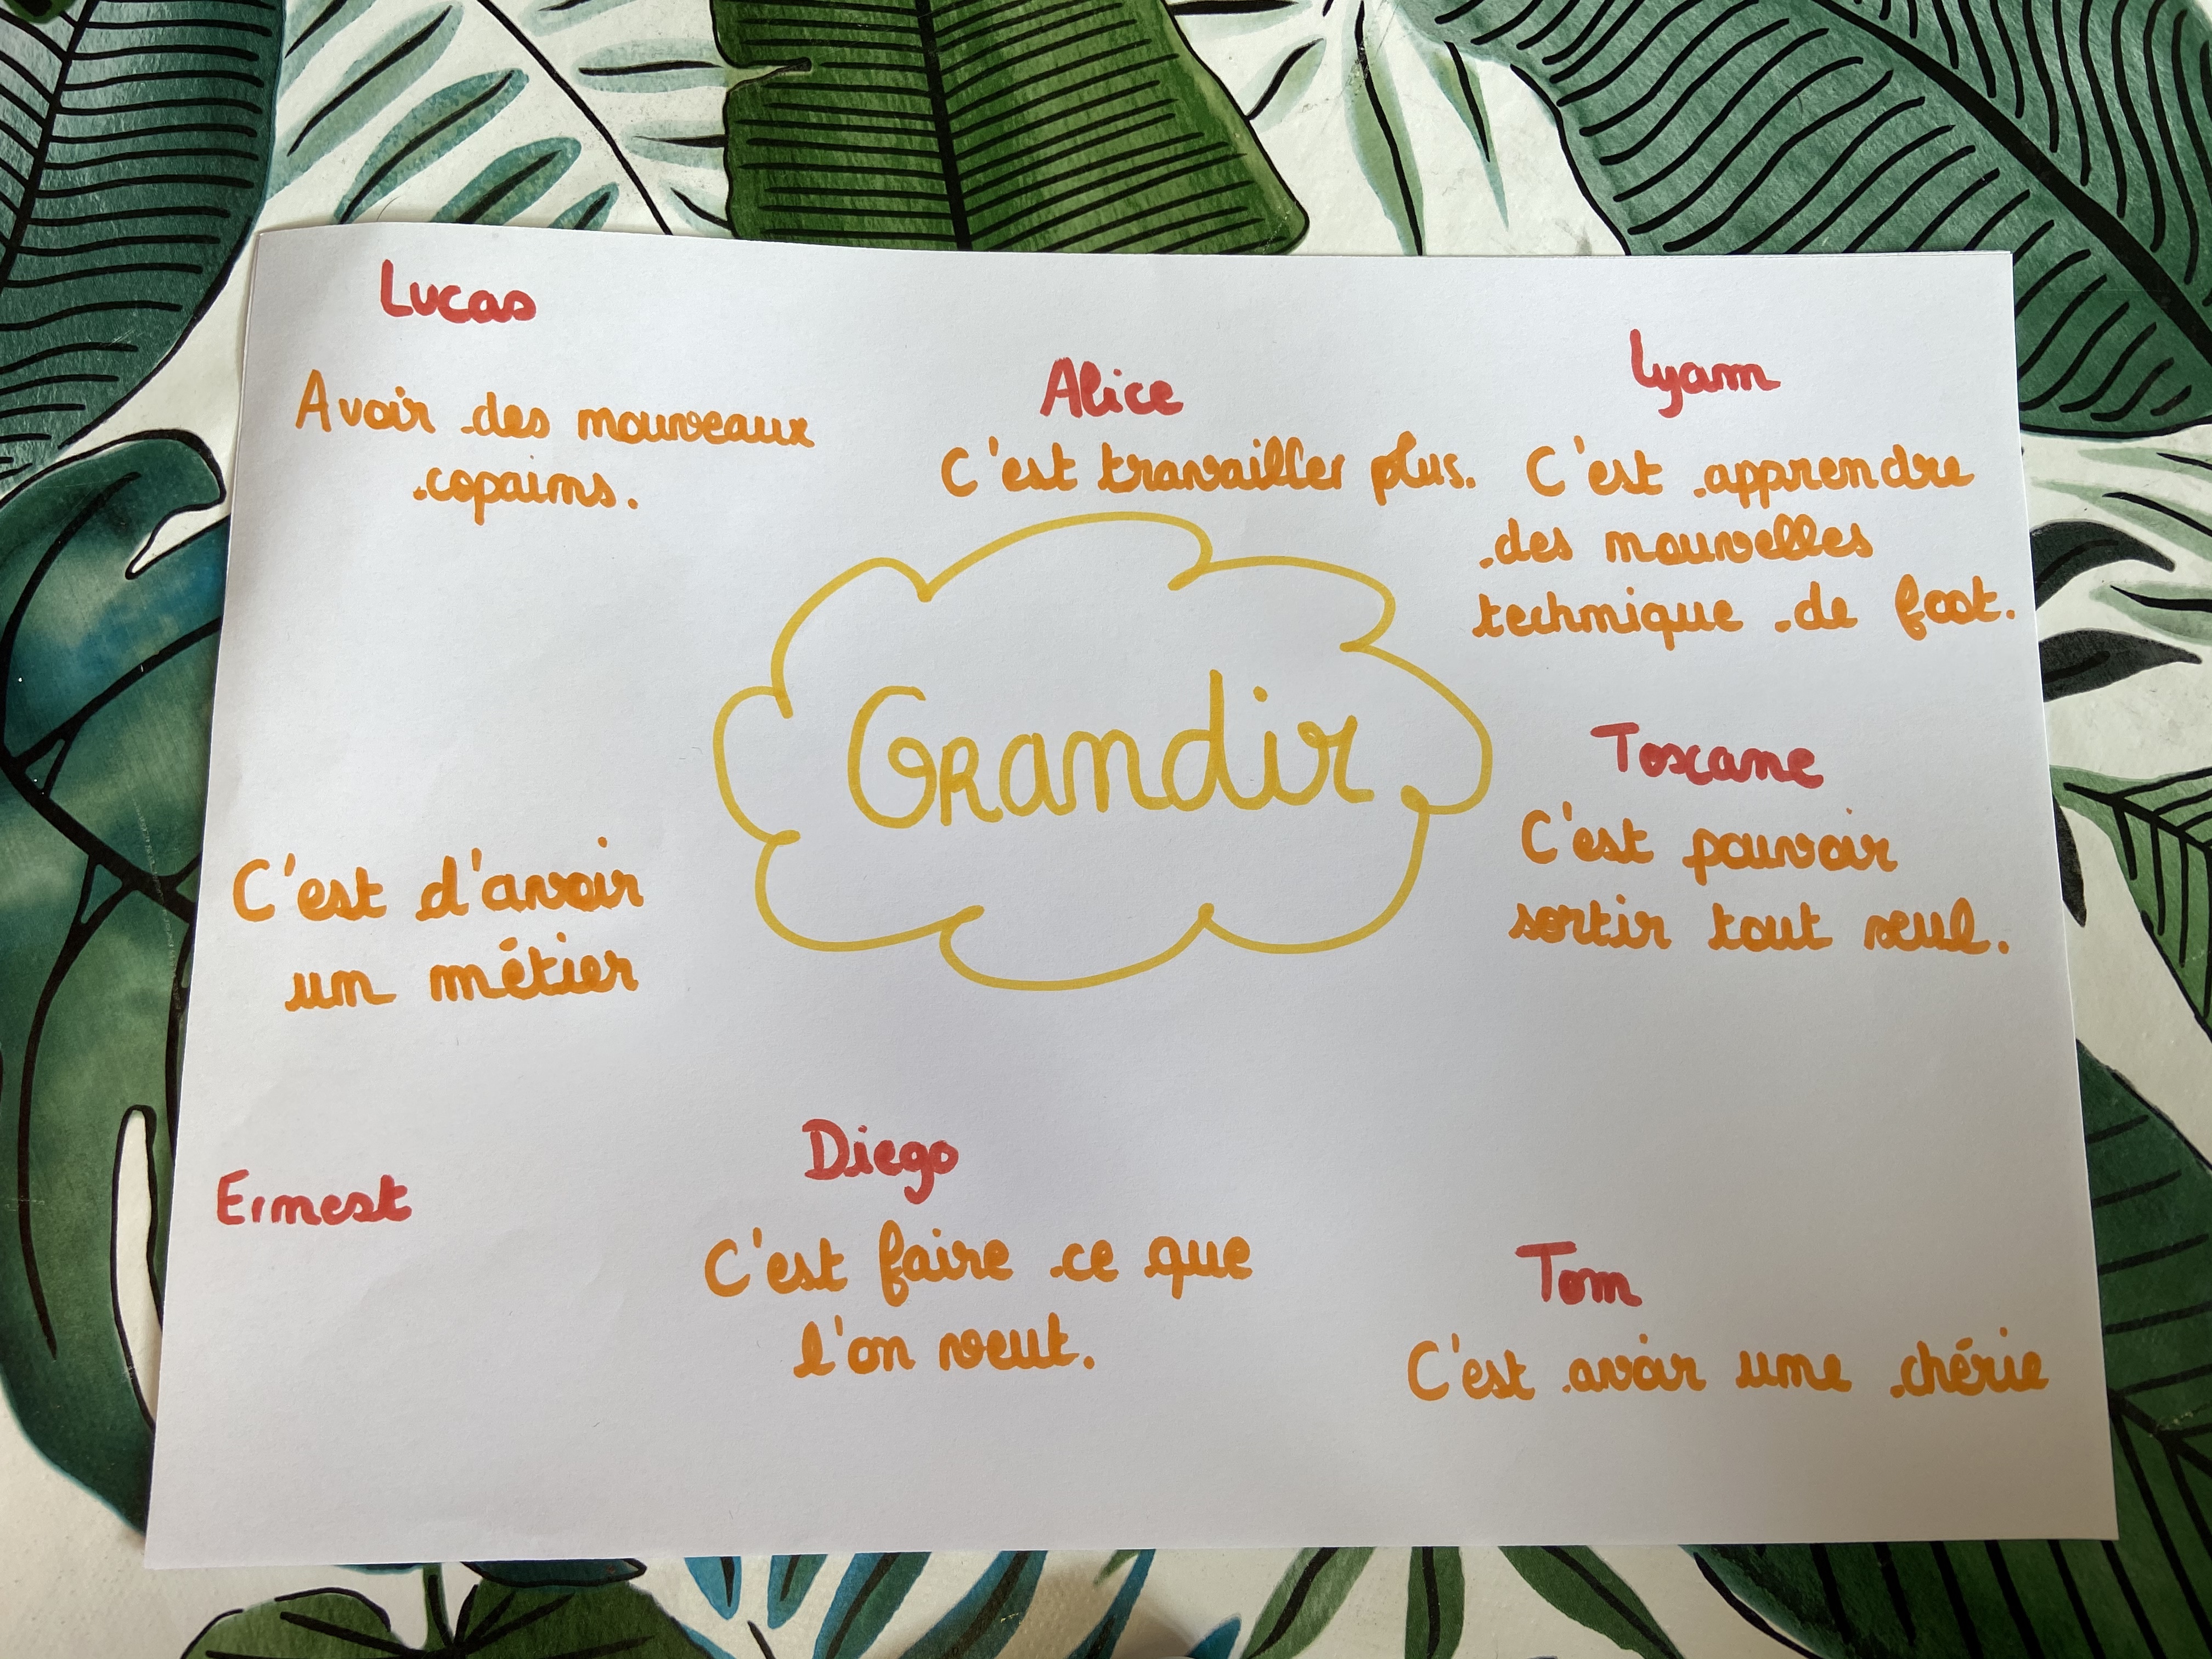 Lucas
Avoir des nouveaux
copains.
Alice
C'est travailler plus.
Lyam
C'est apprendre
des nouvelles
technique de foot.
Grandir
Toscane
C'est pouvoir
sortir tout seul.
C'est d'avoir
un métier
Ernest
Diego
C'est faire ce que
l'on veut.
Tom
C'est avoir une chérie